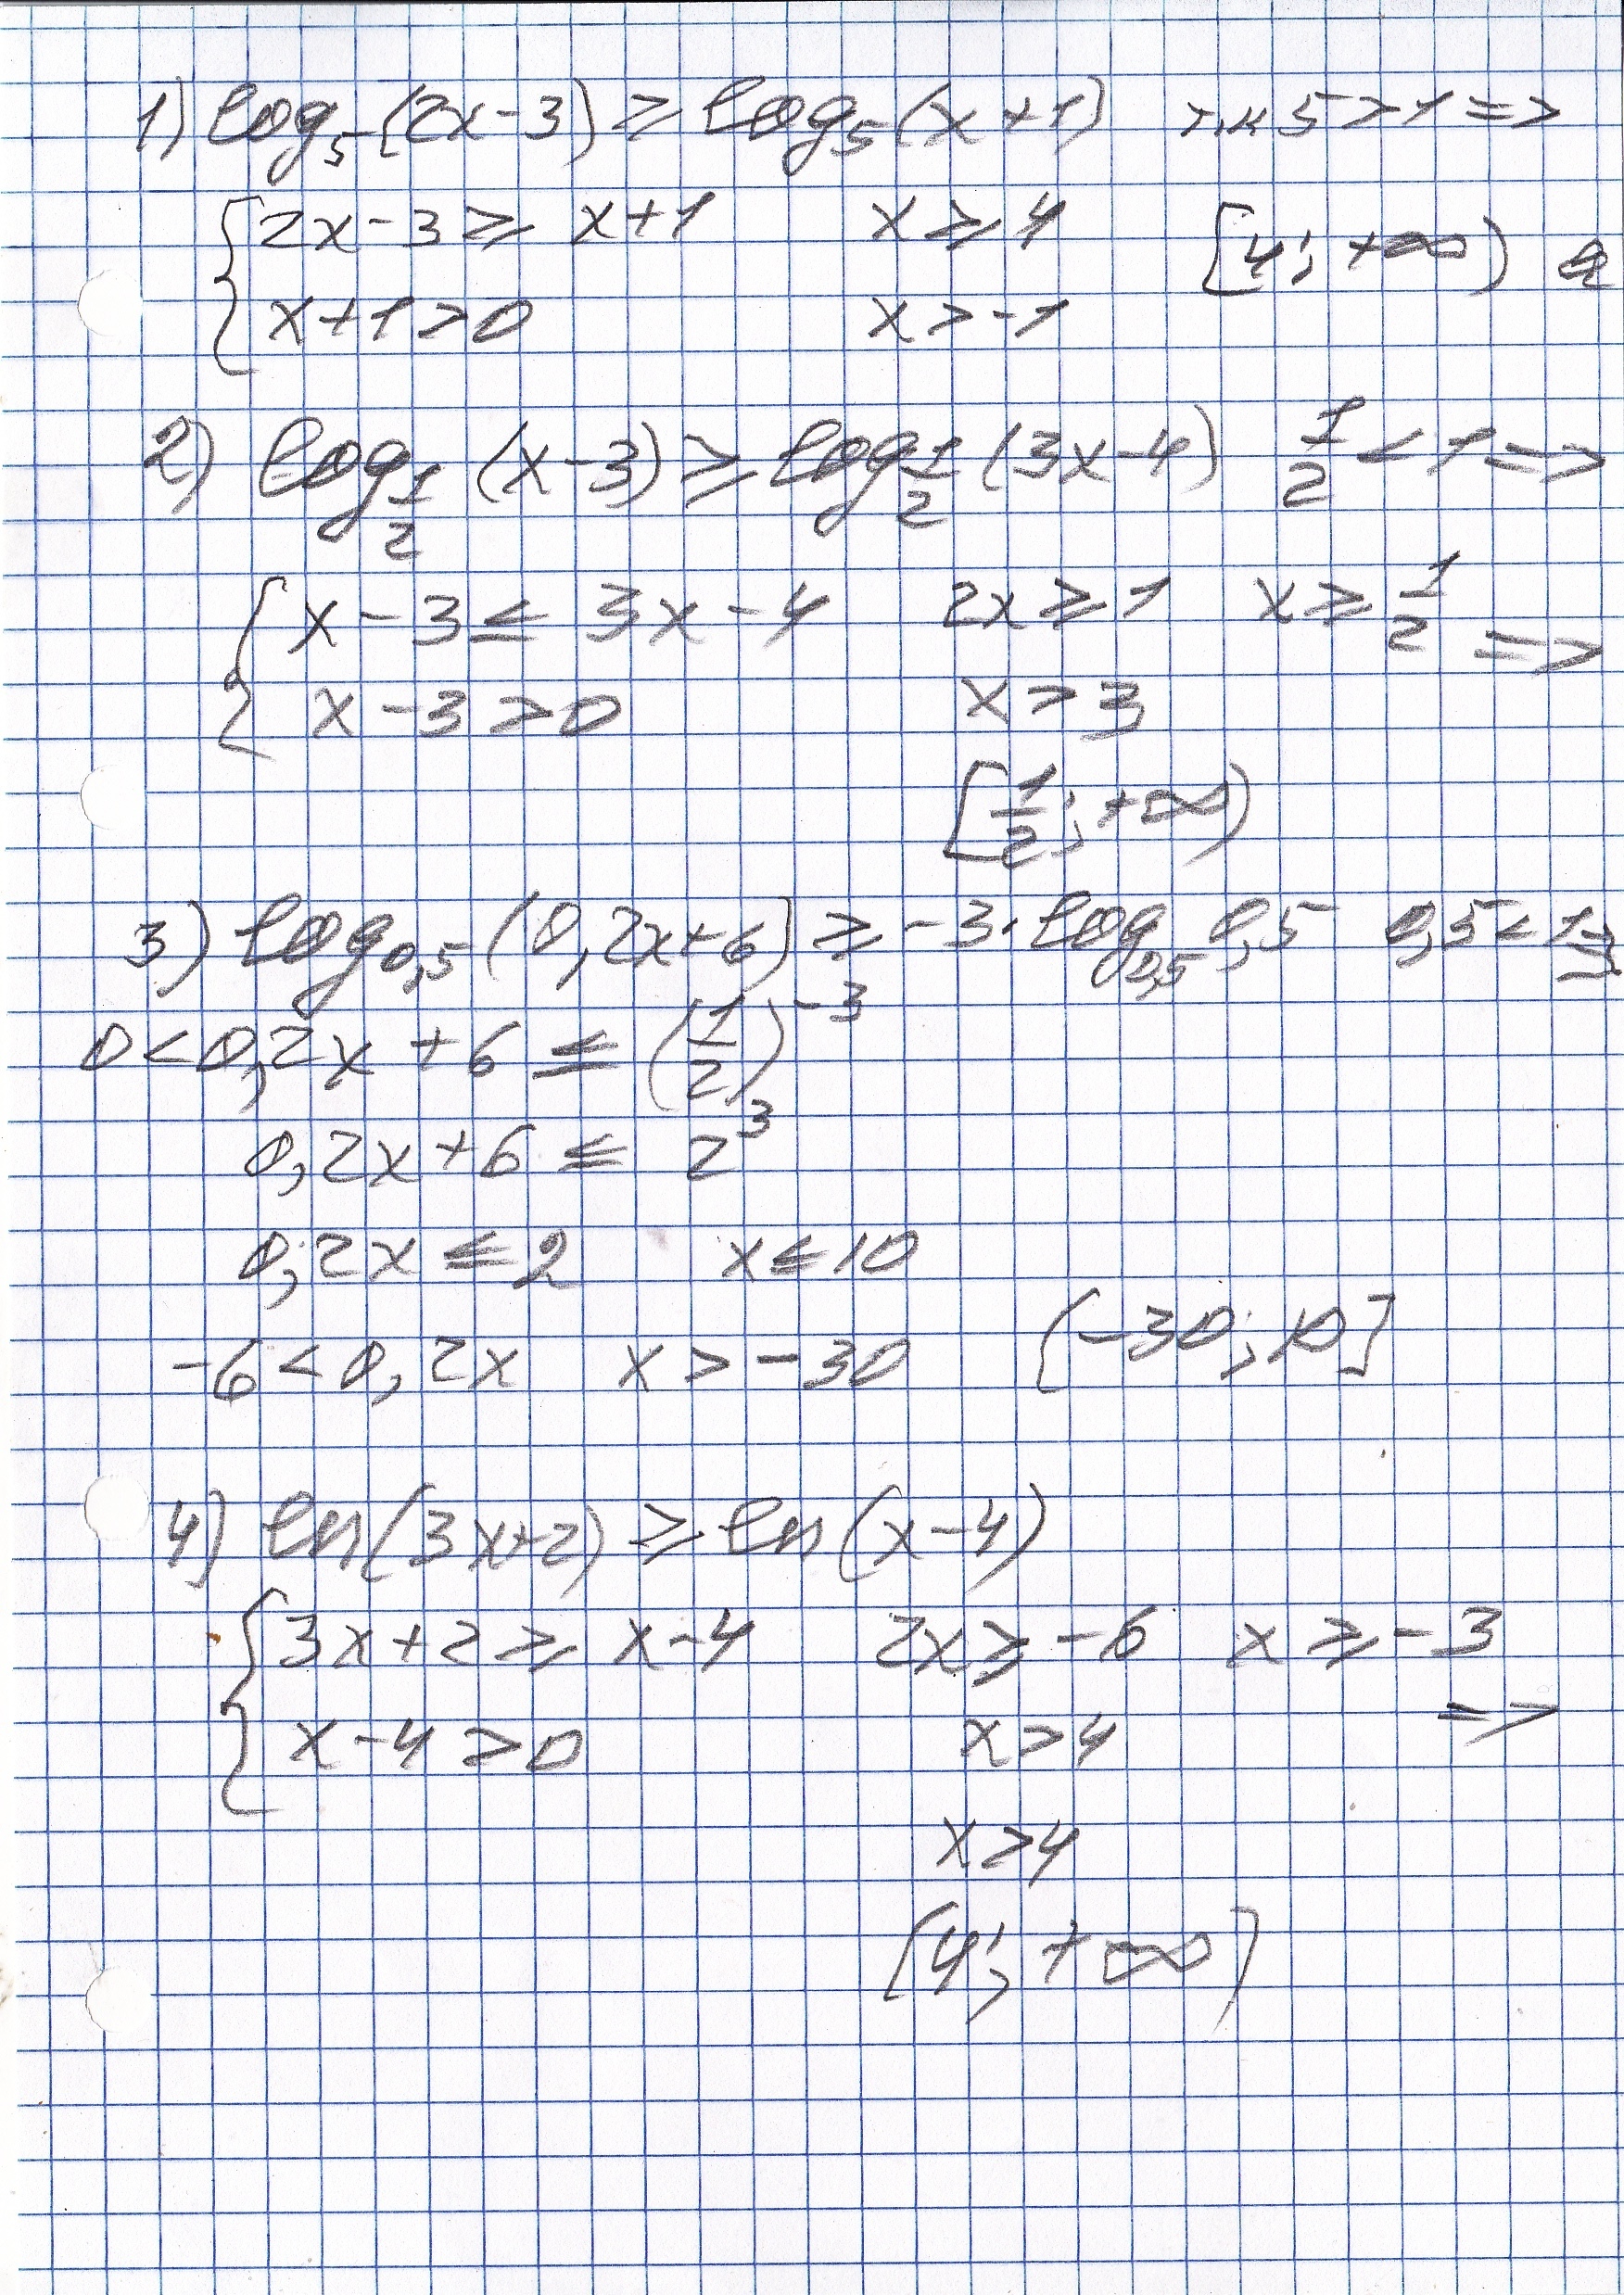 1) log₅(2x-3) ≥ log₅(x+1) т.к 5>1 =>
{ 2x-3 ≥ x+1 x ≥ 4 [4; +∞)
x+1>0 x>-1
2) log_{1/2} (x-3) ≥ log_{1/2} (3x-4) 1/2 < 1 =>
{ x-3 ≤ 3x-4 2x ≥ 1 x ≥ 1/2 =>
x-3>0 x>3
[1/2; +∞)
3) log_{0,5} (0,2x+6) ≥ -3·log_{0,5} 0,5 0,5<1 =>
0<0,2x+6 ≤ (1/2)⁻³
0,2x+6 ≤ 2³
0,2x ≤ 2 x ≤ 10
-6<0,2x x>-30 (-30; 10]
4) ln(3x+2) ≥ ln(x-4)
{ 3x+2 ≥ x-4 2x ≥ -6 x ≥ -3
x-4>0 x>4 =>
x>4
(4; +∞)